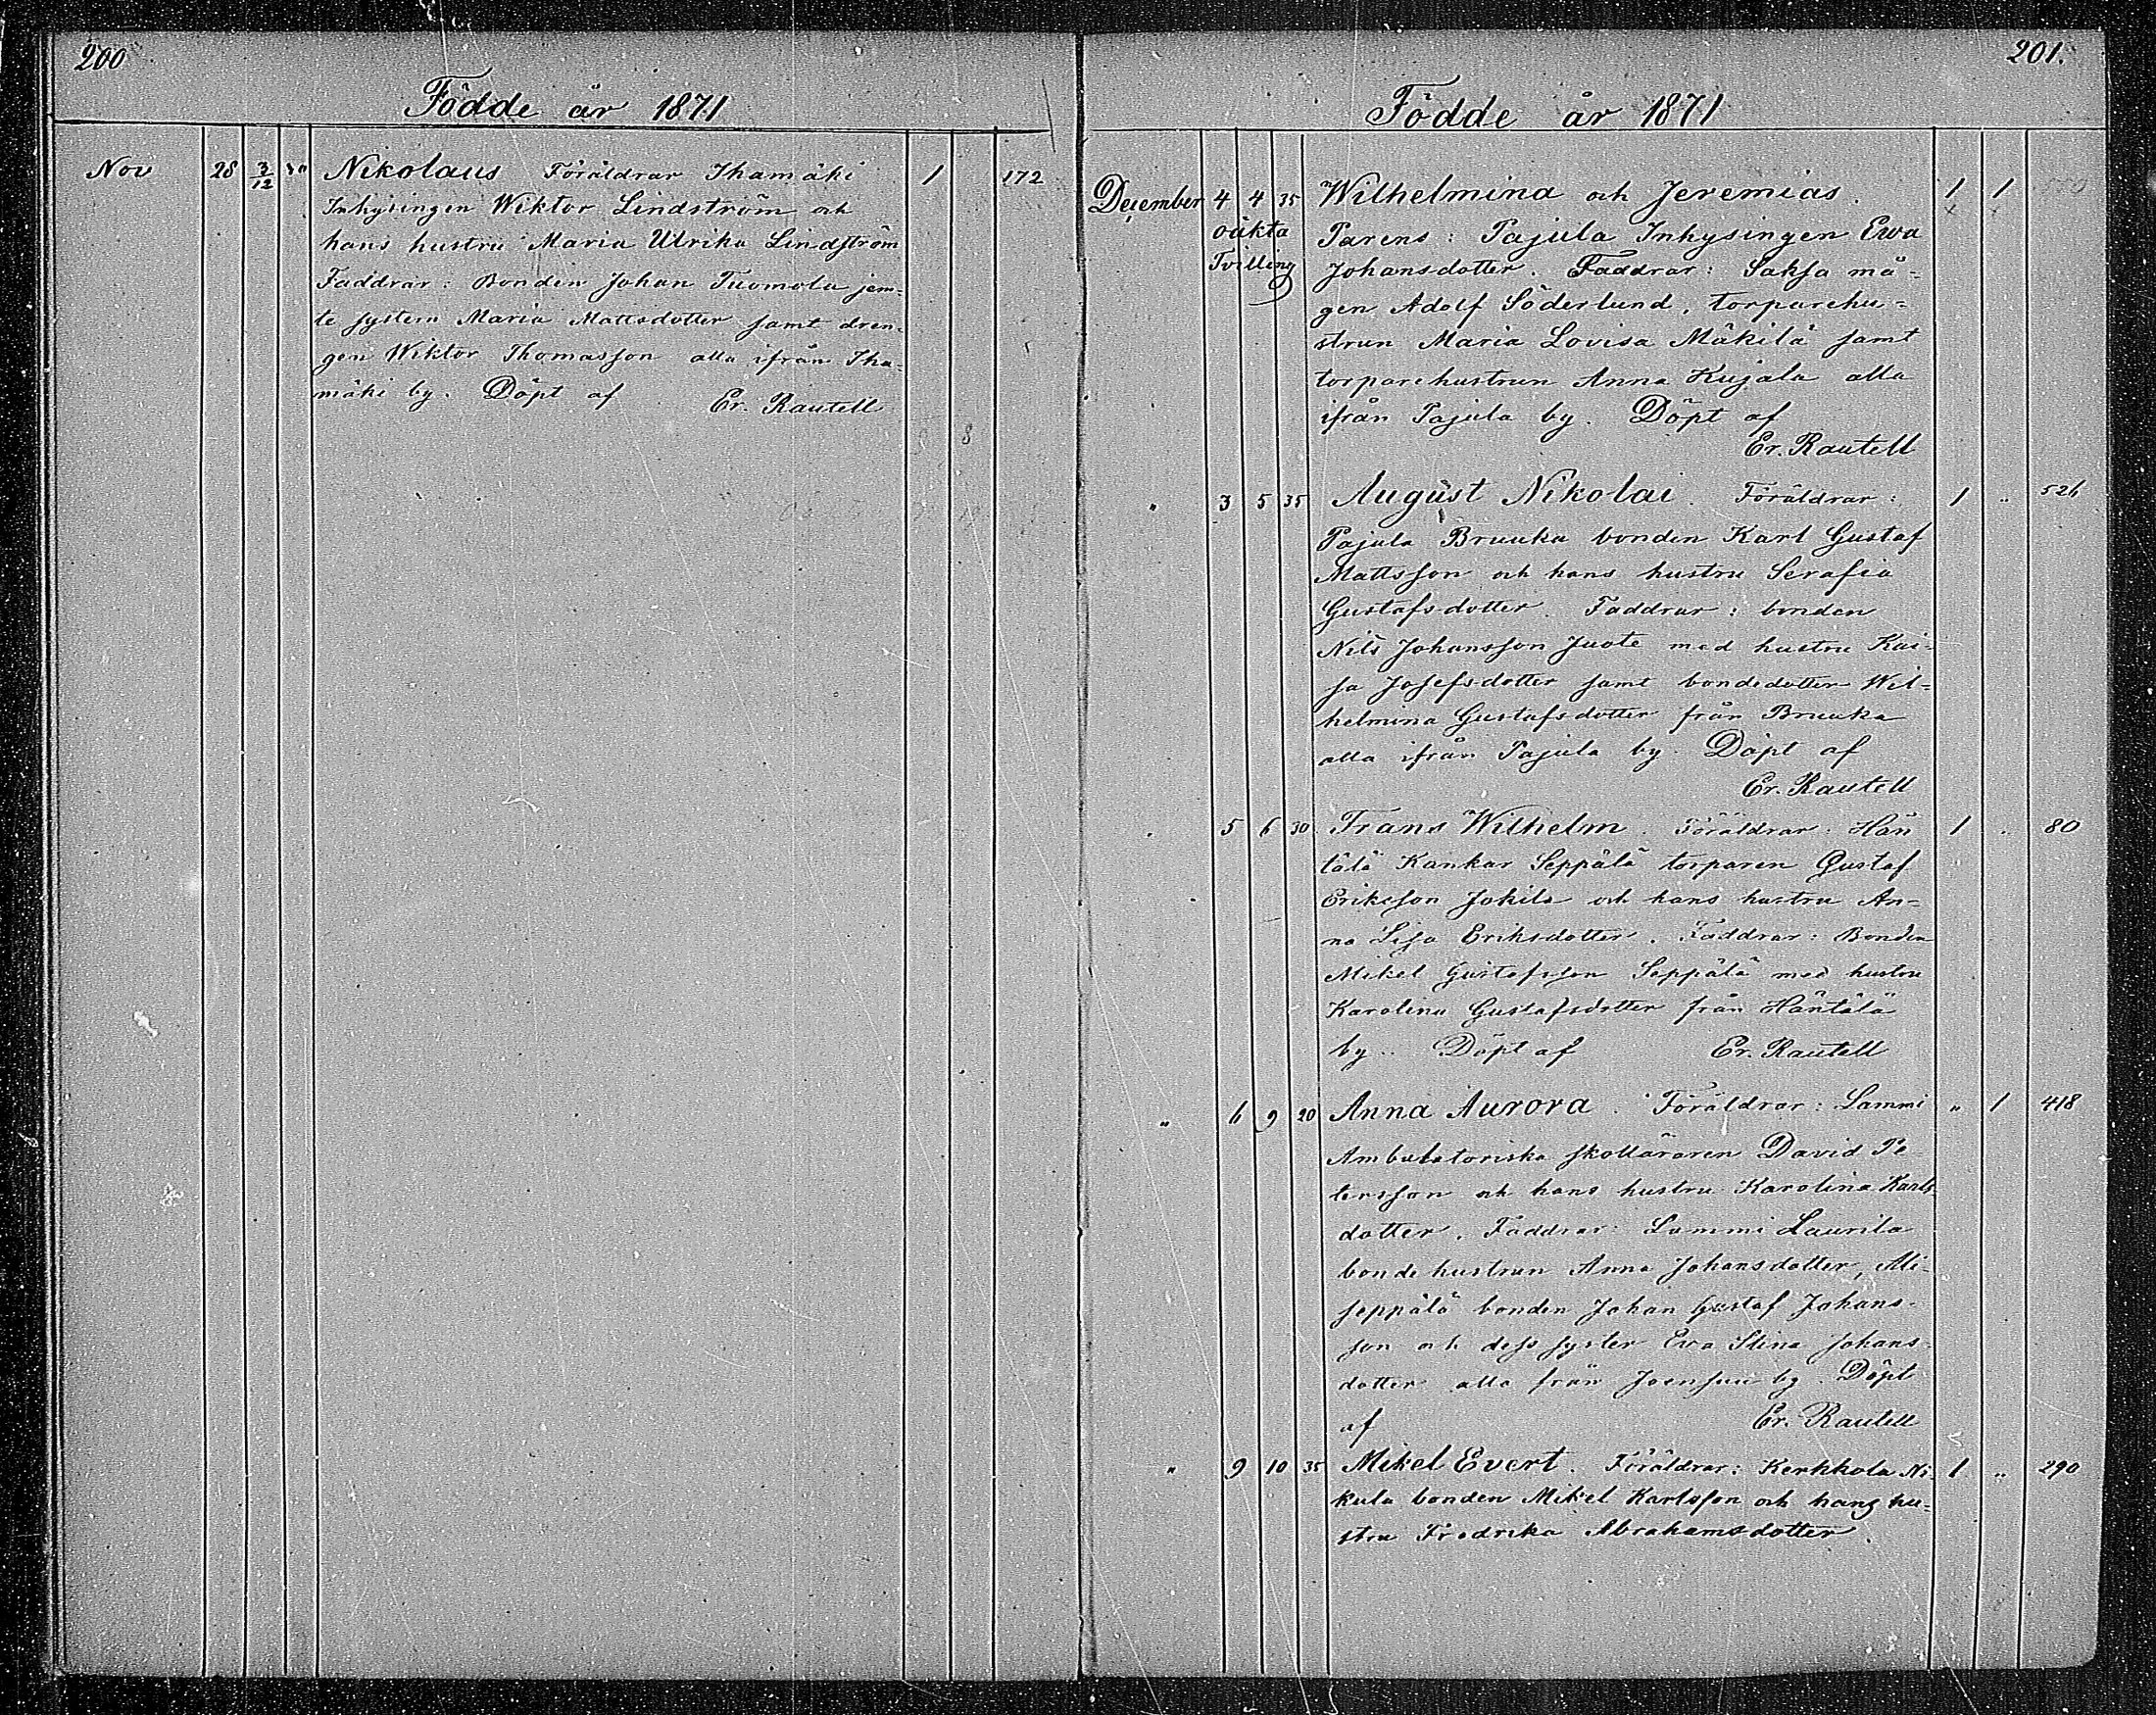 200
Födde år 1871
Nov 28 3/12 Nikolaus Föräldrar Ihamäki 1 172
Inhysingen Wiktor Lindström och
hans hustru Maria Ulrika Lindström
Faddrar: Bonden Johan Tuomola jem-
te system Maria Mattsdotter samt dren-
gen Wiktor Thomasson alla ifrån Iha-
mäki by. Döpt af Er. Rautell
201.
Födde år 1871
December 4 4 35 Wilhelmina och Jeremias. 1 1
oäkta Parens: Pajula Inhysingen Ewa
Tvilling Johansdotter. Faddrar: Saksa må-
gen Adolf Söderlund, torparehu-
strun Maria Lovisa Mäkilä samt
torparehustrun Anna Kujala alla
ifrån Pajula by. Döpt af
Er. Rautell
" 3 5 35 August Nikolai. Föräldrar: 1 " 526
Pajula Bruuka bonden Karl Gustaf
Mattsson och hans hustru Serafia
Gustafsdotter. Faddrar: bonden
Nils Johansson Juote med hustru Kai-
sa Josefsdotter samt bondedotter Wil-
helmina Gustafsdotter från Bruuka
alla ifrån Pajula by. Döpt af
Er. Rautell
" 5 6 30 Frans Wilhelm. Föräldrar: Hän 1 " 80
tälä Kankar Seppälä torparen Gustaf
Eriksson Jokila och hans hustru An-
na Lisa Eriksdotter. Faddrar: Bonden
Mikel Gustafsson Seppälä med hustru
Karolina Gustafsdotter från Häntälä
by. Döpt af Er. Rautell
" 6 9 20 Anna Aurora. Föräldrar: Lammi " 1 418
Ambulatoriska skolläraren David Pe-
tersson och hans hustru Karolina Karls-
dotter. Faddrar: Lammi Laurila
bondehustrun Anna Johansdotter, Ali-
seppälä bonden Johan Gustaf Johans-
son och dess syster Eva Stina Johans-
dotter alla från Joensuu by. Döpt
af Er. Rautell
" 9 10 35 Mikel Evert. Föräldrar: Kerkkola Ni- 1 " 290
kula bonden Mikel Karlsson och hans hu-
stru Fredrika Abrahamsdotter.